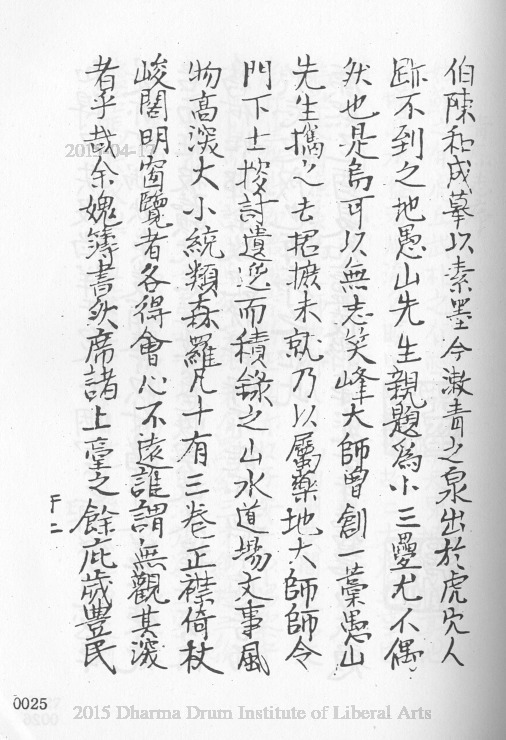 伯陳和成摹以素墨今漱青之泉出於虎穴人
跡不到之地愚山先生親題為小三疊尤不偶
然也是烏可以無志笑峰大師曾創一藁愚山
先生攜之去捃摭未就乃以屬藥地大師師令
門下士按討遺逸而積錄之山水道場文事風
物高深大小統類森羅凡十有三卷正襟倚杖
峻閣明窗覽者各得會心不遠誰謂無觀其深
者乎哉余媿簿書欤席諸上臺之餘庇歲豐民
2015-04-17
0025
2015 Dharma Drum Institute of Liberal Arts